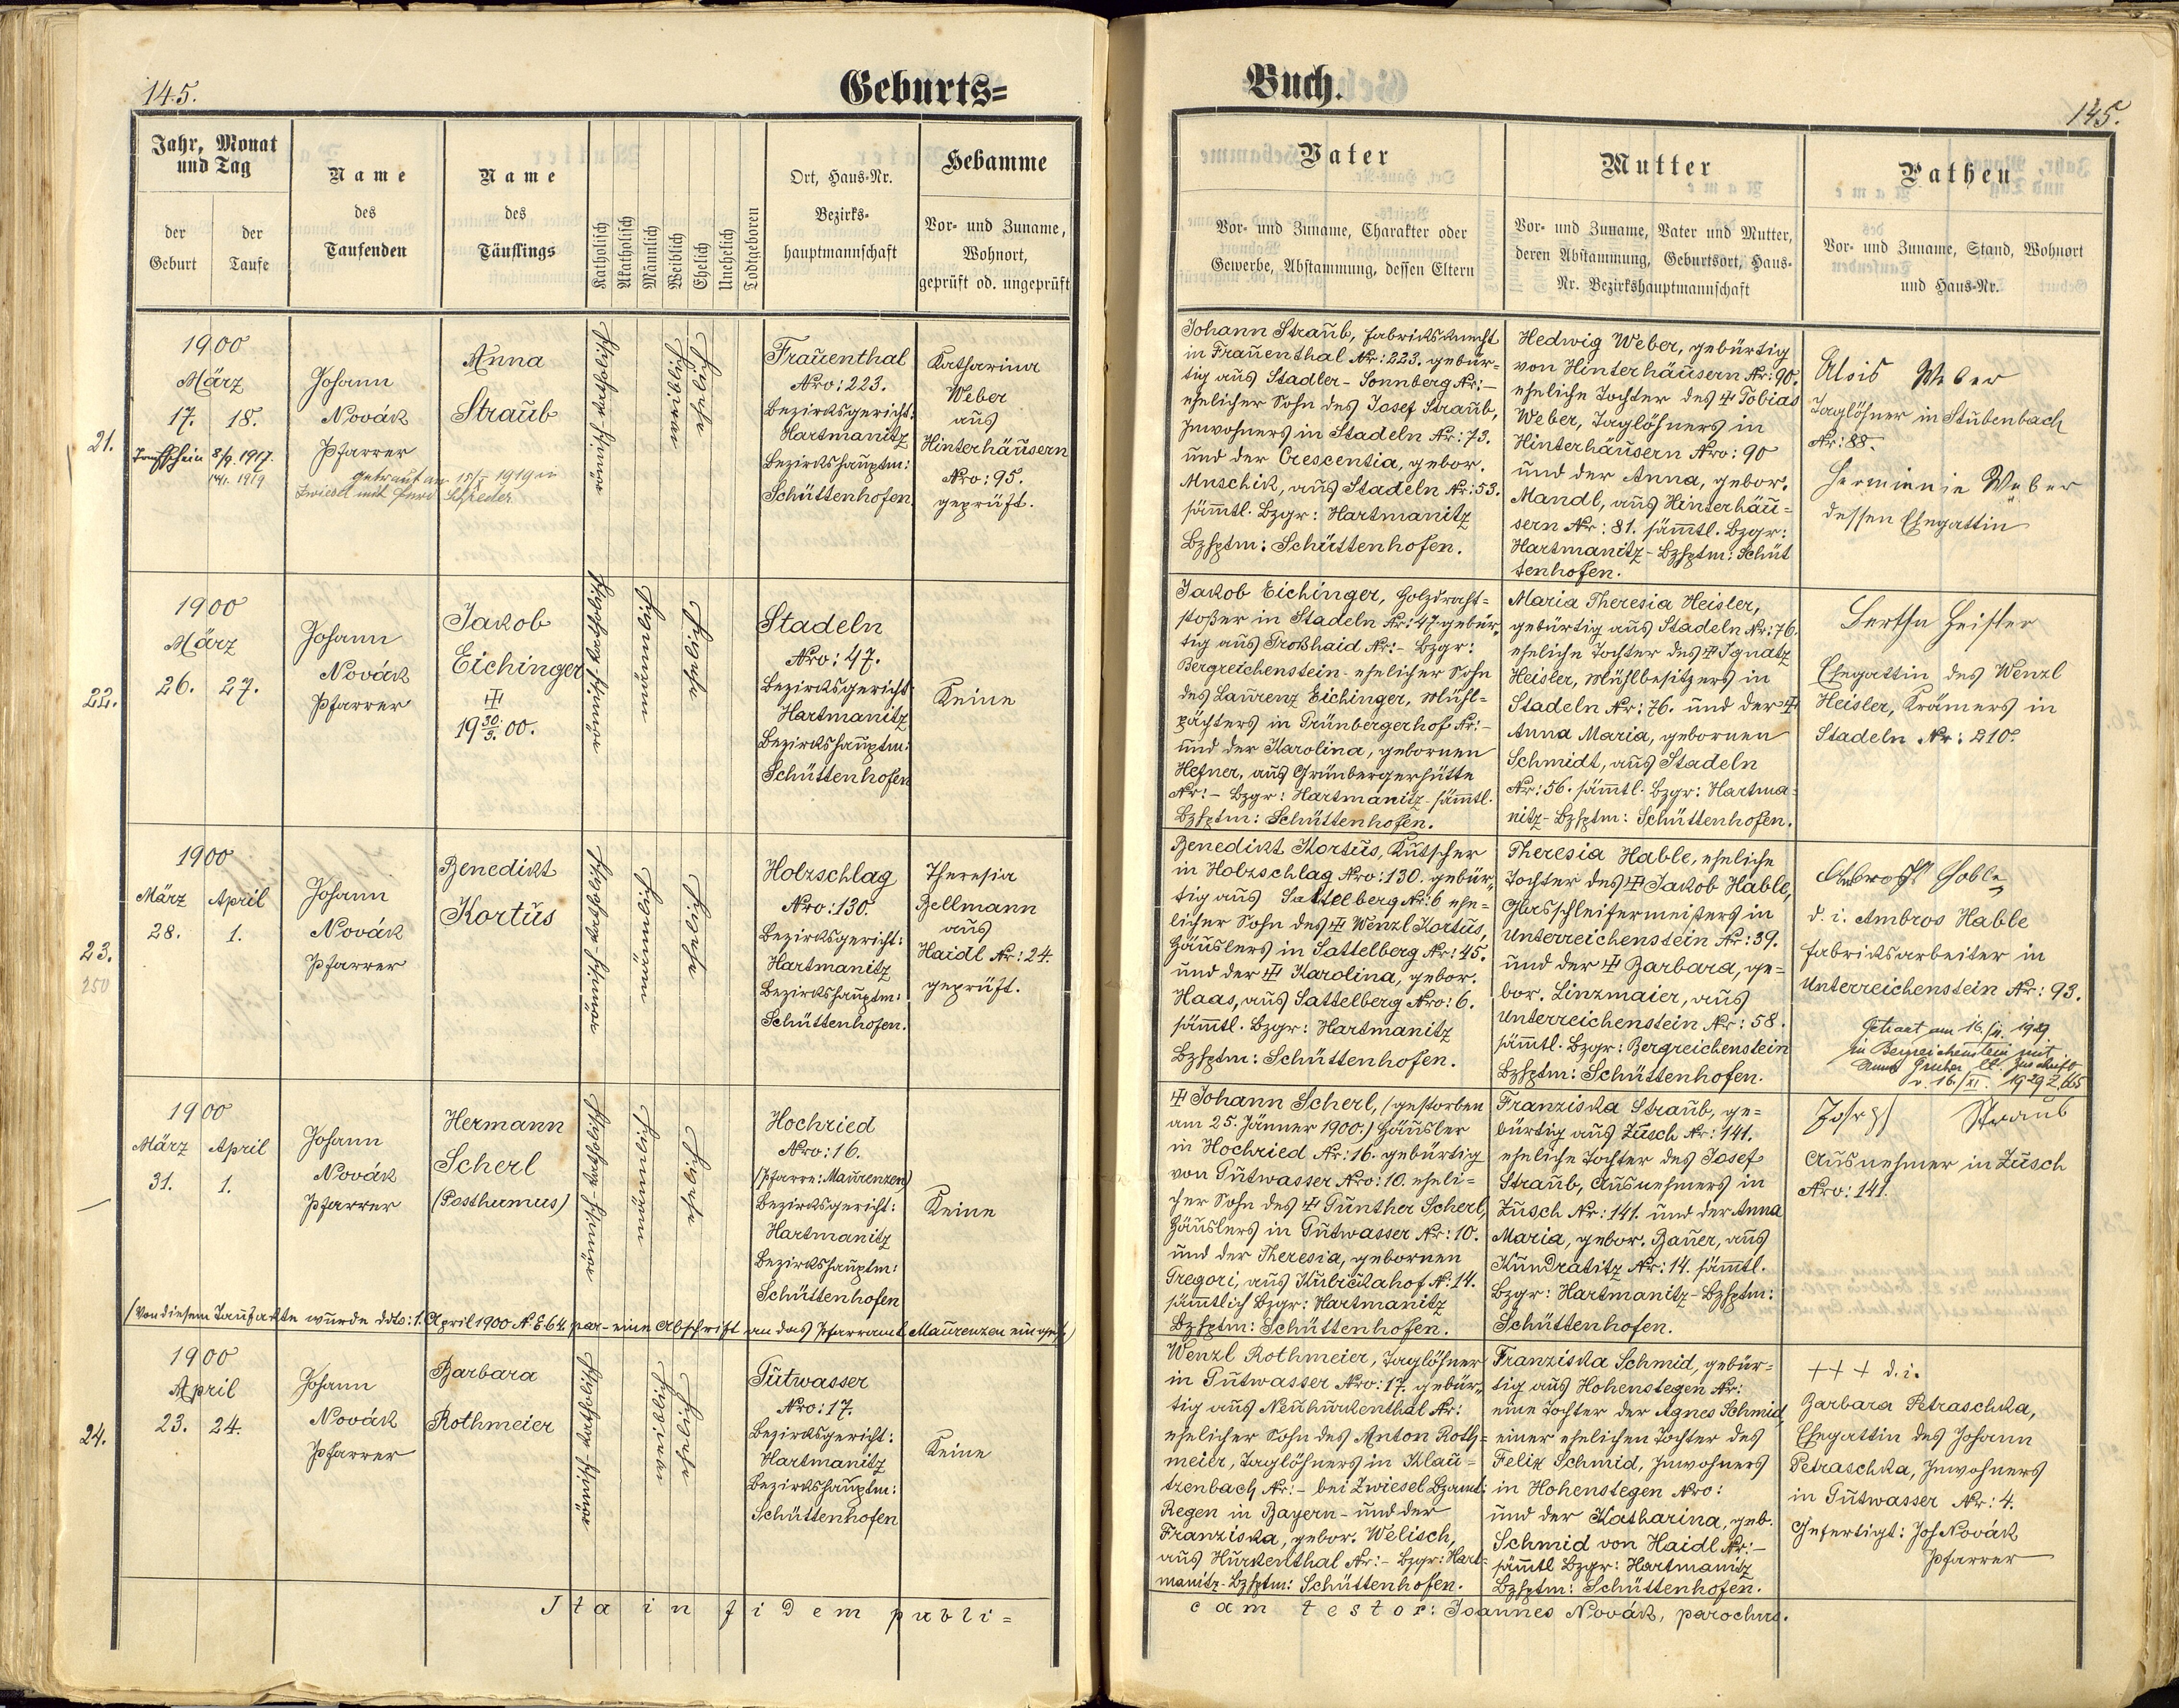 145.
Geburts=
Jahr, Monat
und Tag
der
Geburt
der
Taufe
Name
des
Taufenden
Name
des
Täuflings
Katholisch
Akatholisch
Männlich
Weiblich
Ehelich
Unehelich
Todtgeboren
Ort, Haus-Nr.
Bezirks-
hauptmannschaft
Hebamme
Vor- und Zuname,
Wohnort,
geprüft od. ungeprüft
21.
1900
März
17. 18.
Taufschein 8/9. 1917.
1919
Johann
Novák
Pfarrer
getraut am 1919 in
Zwiesel mit
Anna
Straub
römisch-katholisch
weiblich
ehelich
Frauenthal
Nro: 223.
Bezirksgericht:
Hartmanitz
Bezirkshauptm:
Schüttenhofen.
Katharina
Weber
aus
Hinterhäusern
Nro: 95.
geprüft.
22.
1900
März
26. 27.
Johann
Novák
Pfarrer
Jakob
Eichinger
19 30/3. 00.
römisch katholisch
männlich
ehelich
Stadeln
Nro: 47.
Bezirksgericht
Hartmanitz
Bezirkshauptm:
Schüttenhofen
Keine
23.
250
1900
März April
28. 1.
Johann
Novák
Pfarrer
Benedikt
Kortus
römisch-katholisch
männlich
ehelich
Holzschlag
Nro: 130.
Bezirksgericht:
Hartmanitz
Bezirkshauptm:
Schüttenhofen.
Theresia
Bellmann
aus
Haidl Nr: 24.
geprüft.
1900
März April
31. 1.
Johann
Novák
Pfarrer
Hermann
Scherl
(Posthumus)
römisch-katholisch
männlich
ehelich
Hochried
Nro: 16.
(Pfarre: Maurenzen)
Bezirksgericht:
Hartmanitz
Bezirkshauptm:
Schüttenhofen
Keine
(Von diesem Taufakte wurde ddto: 1. April 1900 N. E. 64 par- eine Abschrift an das Pfarramt Maurenzen
24.
1900
April
23. 24.
Johann
Novák
Pfarrer
Barbara
Rothmeier
römisch-katholisch
weiblich
ehelich
Gutwasser
Nro: 17.
Bezirksgericht:
Hartmanitz
Bezirkshauptm:
Schüttenhofen
Keine
Ita in fidem publi=
Buch.
145.
Vater
Vor- und Zuname, Charakter oder
Gewerbe, Abstammung, dessen Eltern
Mutter
Vor- und Zuname, Vater und Mutter,
deren Abstammung, Geburtsort, Haus-
Nr. Bezirkshauptmannschaft
Pathen
Vor- und Zuname, Stand, Wohnort
und Haus-Nr.
Johann Straub, Fabriksknecht
in Frauenthal Nr: 223. gebür=
tig aus Stadler-Sonnberg Nr: -
ehelicher Sohn des Josef Straub,
Inwohners in Stadeln Nr: 73.
und der Crescentia, gebor.
Muschik, aus Stadeln Nr: 53.
sämtl. Bzgr: Hartmanitz
Bzhptm: Schüttenhofen.
Hedwig Weber, gebürtig
von Hinterhäusern Nr: 90.
eheliche Tochter des Tobias
Weber, Taglöhners in
Hinterhäusern Nro: 90
und der Anna, gebor.
Mandl, aus Hinterhäu=
sern Nr: 81. sämtl. Bzgr:
Hartmanitz-Bzhptm: Schüt
tenhofen.
Alois Weber
Taglöhner in Stubenbach
Nr: 88.
Herminie Weber
dessen Ehegattin
Jakob Eichinger, Holzdraht=
stoßer in Stadeln Nr: 47 gebür=
tig aus Großhaid Nr: - Bzgr:
Bergreichenstein - ehelicher Sohn
des Laurenz Eichinger, Mühl=
pächters in Grünbergerhof Nr: -
und der Karolina, gebornen
Hefner, aus Grünbergerhütte
Nr: - Bzgr: Hartmanitz - sämtl.
Bzhptm: Schüttenhofen.
Maria Theresia Heisler,
gebürtig aus Stadeln Nr: 76.
eheliche Tochter des Ignatz
Heisler, Mühlbesitzers in
Stadeln Nr: 76. und der
Anna Maria, gebornen
Schmidt, aus Stadeln
Nr: 56. sämtl. Bzgr: Hartma=
nitz-Bzhptm: Schüttenhofen.
Bertha Heisler
Ehegattin des Wenzl
Heisler, Krämers in
Stadeln Nr: 210.
Benedikt Kortus, Kutscher
in Holzschlag Nro: 130. gebür=
tig aus Sattelberg Nr: 6 ehe=
licher Sohn des Wenzl Kortus,
Häuslers in Sattelberg Nr: 45.
und der Karolina, gebor.
Haas, aus Sattelberg Nro: 6.
sämtl. Bzgr: Hartmanitz
Bzhptm: Schüttenhofen.
Theresia Hable, eheliche
Tochter des Jakob Hable,
Glasschleifermeisters in
Unterreichenstein Nr: 39.
und der Barbara, ge=
bor. Linzmaier, aus
Unterreichenstein Nr: 58.
sämtl. Bzgr: Bergreichenstein
Bzhptm: Schüttenhofen.
Hable
d. i. Ambros Hable
Fabriksarbeiter in
Unterreichenstein Nr: 93.
Getraut am 16./11. 1929
in Bergreichenstein mit
Anna Gruber lt. Zuschrift
v. 16./XI. 1929 Z. 665
Johann Scherl, (gestorben
am 25. Jänner 1900.) Häusler
in Hochried Nr: 16. gebürtig
von Gutwasser Nro: 10. eheli=
cher Sohn des Günther Scherl,
Häuslers in Gutwasser Nr: 10.
und der Theresia, gebornen
Gregori, aus Kubickahof N: 14.
sämtlich Bzgr: Hartmanitz
Bzhptm: Schüttenhofen.
Franziska Straub, ge=
bürtig aus Zusch Nr: 141.
eheliche Tochter des Josef
Straub, Ausnehmers in
Zusch Nr: 141. und der Anna
Maria, gebor. Bauer, aus
Kundratitz Nr: 14. sämtl.
Bzgr: Hartmanitz-Bzhptm:
Schüttenhofen.
Josef Straub
Ausnehmer in Zusch
Nro: 141.
Wenzl Rothmeier, Taglöhner
in Gutwasser Nro: 17. gebür=
tig aus Neuhurkenthal Nr:
ehelicher Sohn des Anton Roth=
meier, Taglöhners in Klau=
tzenbach Nr: - bei Zwiesel Bzamt:
Regen in Bayern - und der
Franziska, gebor. Welisch,
aus Hurkenthal Nr: - Bzgr: Hart=
manitz-Bzhptm: Schüttenhofen.
Franziska Schmid, gebür=
tig aus Hohenstegen Nr:
eine Tochter der Agnes Schmid
einer ehelichen Tochter des
Felix Schmid, Inwohners
in Hohenstegen Nro:
und der Katharina, geb.
Schmid von Haidl Nr: -
sämtl Bzgr: Hartmanitz
Bzhptm: Schüttenhofen.
+++ d. i.
Barbara Petraschka,
Ehegattin des Johann
Petraschka, Inwohners
in Gutwasser Nr: 4.
Gefertigt: Joh Novák
Pfarrer
cam testor: Joannes Novák, parochus.